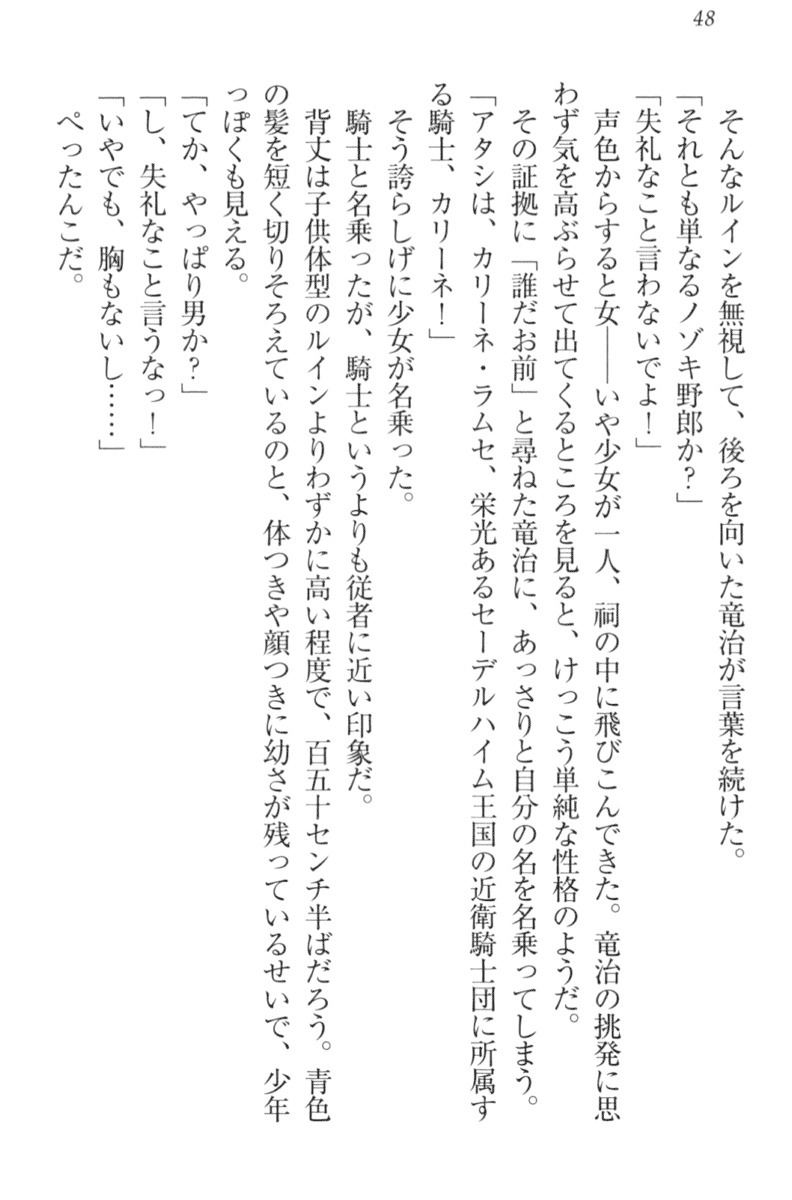 48
そんなルインを無視して、後ろを向いた竜治が言葉を続けた。
「それとも単なるノゾキ野郎か?」
「失礼なこと言わないでよ!」
声色からすると女――いや少女が一人、祠の中に飛びこんできた。竜治の挑発に思
わず気を高ぶらせて出てくるところを見ると、けっこう単純な性格のようだ。
その証拠に「誰だお前」と尋ねた竜治に、あっさりと自分の名を名乗ってしまう。
「アタシは、カリーネ・ラムセ、栄光あるセーデルハイム王国の近衛騎士団に所属す
る騎士、カリーネ!」
そう誇らしげに少女が名乗った。
騎士と名乗ったが、騎士というよりも従者に近い印象だ。
背丈は子供体型のルインよりわずかに高い程度で、百五十センチ半ばだろう。青色
の髪を短く切りそろえているのと、体つきや顔つきに幼さが残っているせいで、少年
っぽくも見える。
「てか、やっぱり男か?」
「し、失礼なこと言うなっ!」
「いやでも、胸もないし……」
ぺったんこだ。